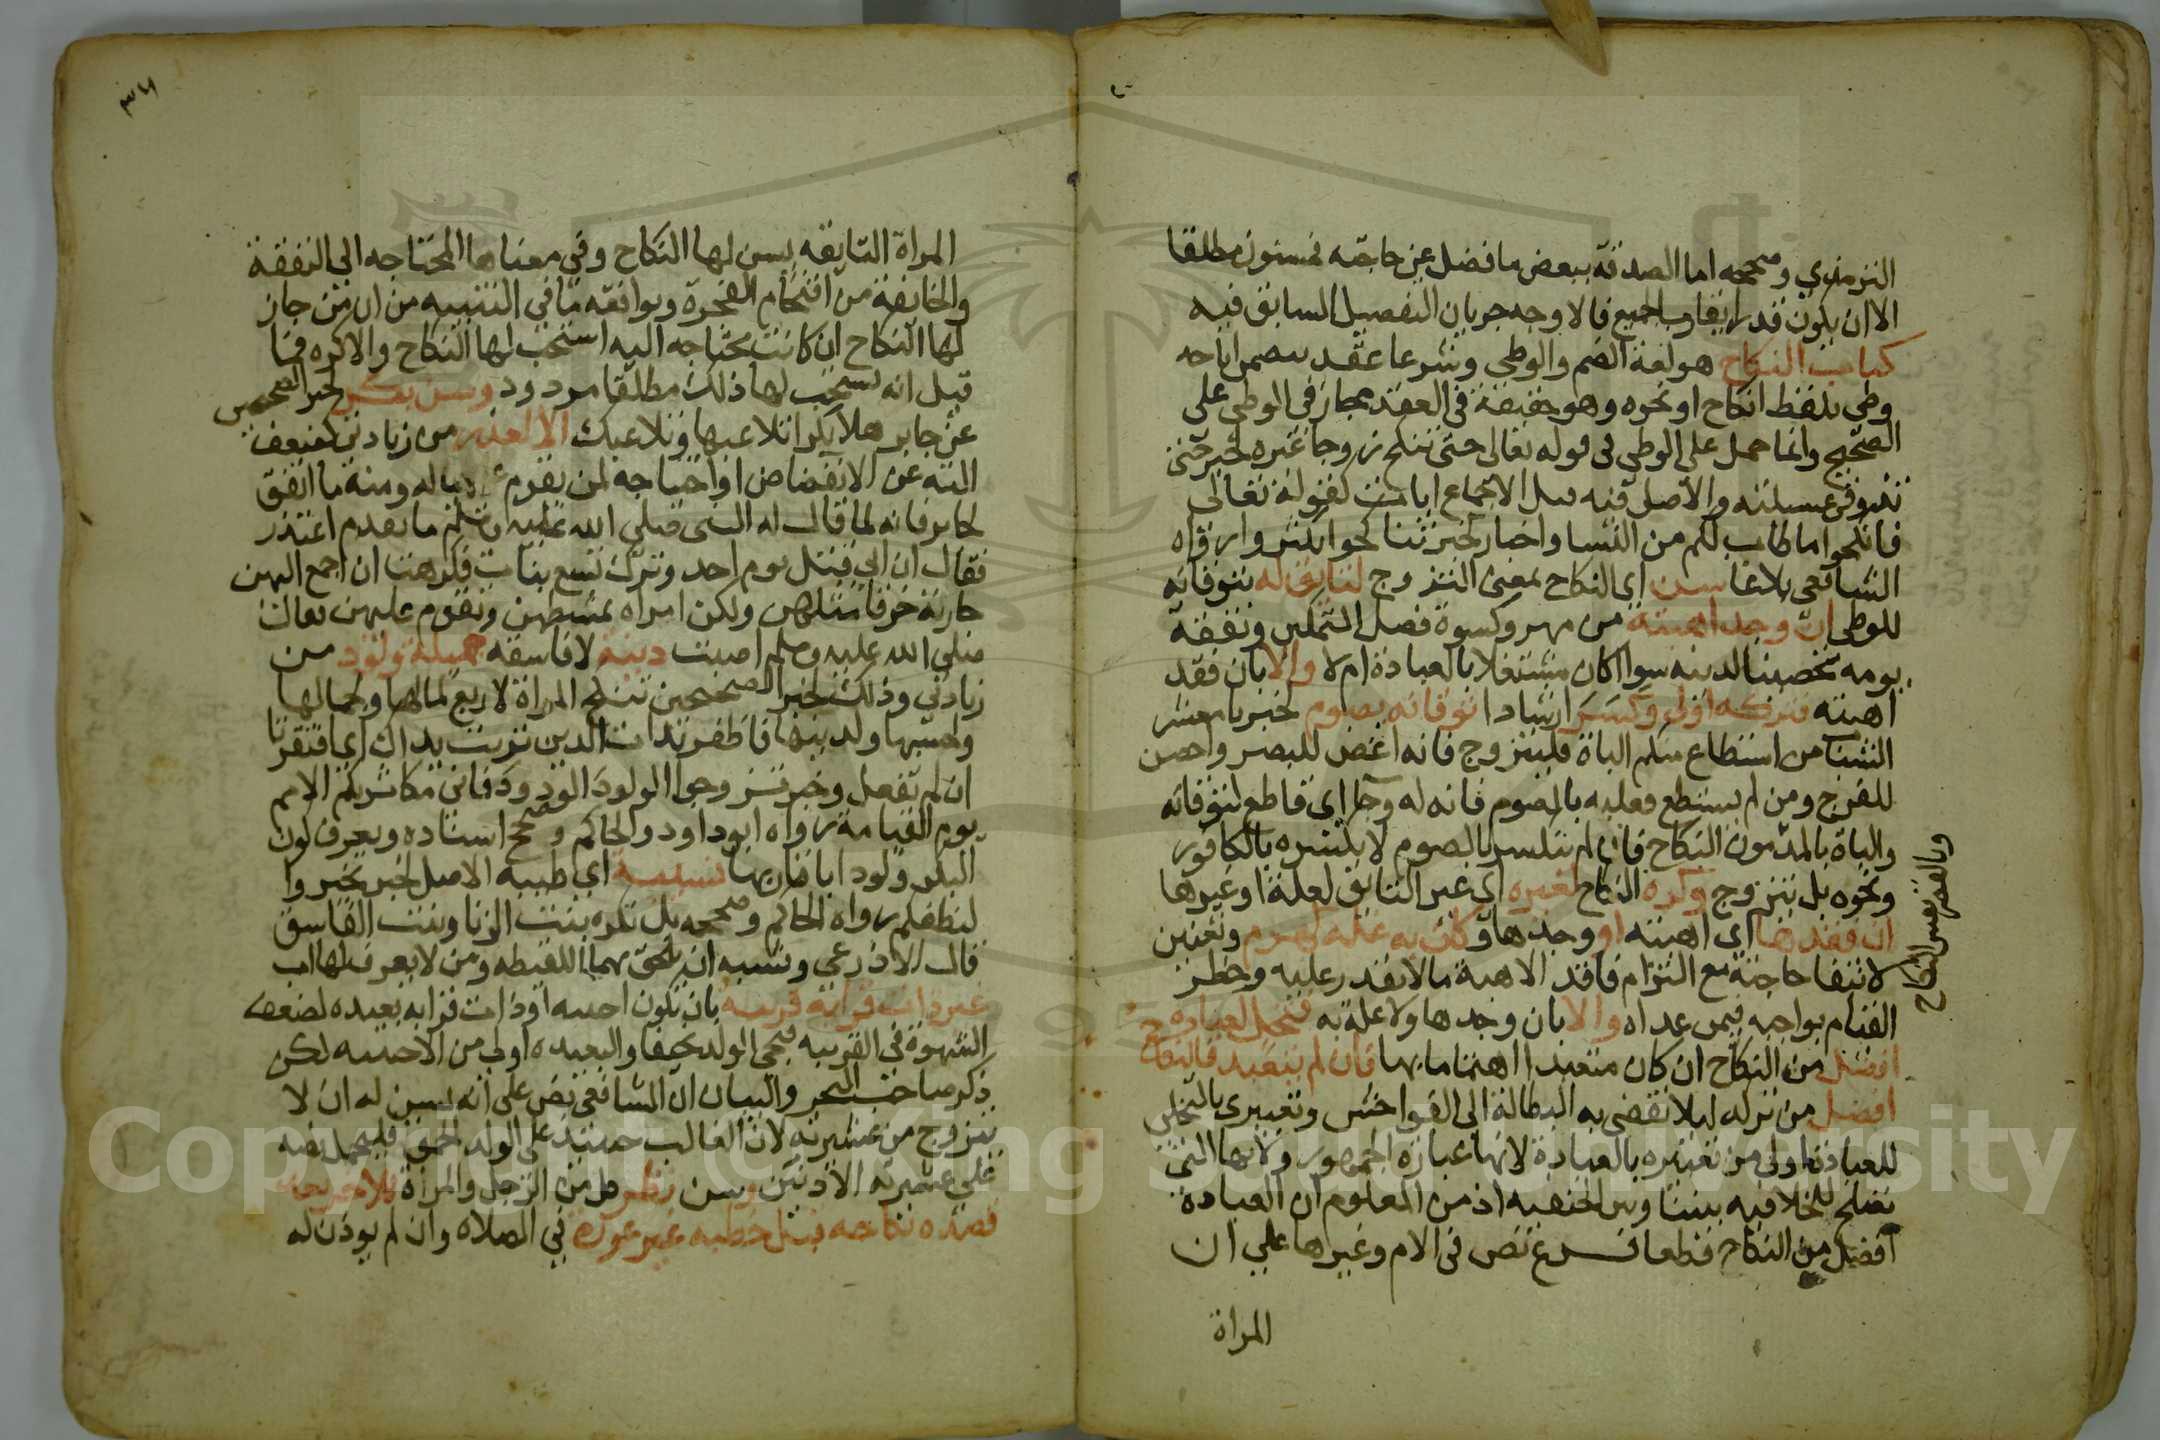 الترمذي وصححه اما الصدقة ببعض ما فضل عن حاجته فمسنون مطلقا
الا ان يكون قدرا يقارب الجميع فالاوجه جريان التفصيل السابق فيه
كتاب النكاح هو لغة الضم والوطي وشرعا عقد يتضمن اباحه
وطي بلفظ انكاح او نحوه وهو حقيقة في العقد مجاز في الوطي على
الصحيح وانما حمل على الوطي في قوله تعالى حتى تنكح زوجا غيره لخبر حتى
تذوقي عسيلته والاصل فيه قبل الاجماع ايات كقوله تعالى
فانكحوا ما طاب لكم من النسا واخبار كخبر تناكحوا تكثروا رواه
الشافعي بلاغا سن اي النكاح بمعنى التزوج لتايق له بتوقانه
للوطي ان وجد اهبته من مهر وكسوة فصل التمكين ونفقة
يومه تحصينا لدينه سوا اكان مشتغلا بالعبادة ام لا والا بان فقد
اهبته فتركه اولى وكسر ارشادا توقانه بصوم لخبر يا معشر
الشباب من استطاع منكم الباة فليتزوج فانه اغض للبصر واحصن
للفرج ومن لم يستطع فعليه بالصوم فانه له وجا اي قاطع لتوقانه
والباة بالمد مون النكاح فان لم ينكسر بالصوم لا يكسره بالكافور
ونحوه بل يتزوج وكره النكاح لغيره اي غير التايق لعلة او غيرها
ان فقدها اي اهبته او وجدها وكان به علة كهرم وتعنين
لانتفا حاجته مع التزام فاقد الاهبة ما لا يقدر عليه وخطر
القيام بواجبه فيمن عداه والا بان وجدها ولا علة به فتخل لعبادة
افضل من النكاح ان كان متعبدا اهتماما بها فان لم يتعبد فالنكاح
افضل من تركه ليلا تفضي به البطالة الى الفواحش وتعبيري بالتخلي
للعبادة اولى من تعبيره بالعبادة لانها عبارة الجمهور ولانها التي
تصلح للخلاف فيه بيننا وبين الحنفيه اذ من المعلوم ان العبادة
افضل من النكاح قطعا فرع نص في الام وغيرها على ان
المراة
وبالفقر نفس النكاح
المراة التايقه يسن لها النكاح وفي معناها المحتاجه الى النفقة
والخايفة من اقتحام الفجرة ويوافقه ما في التنبيه من ان من جاز
لها النكاح ان كانت محتاجه اليه استحب لها النكاح والا كره فما
قيل انه يستحب لها ذلك مطلقا مردود وسن بكر لخبر الصحيحين
عن جابر هلا بكرا تلاعبها وتلاعبك الا لعذر من زيادتي كضعف
الته عن الافتضاض او احتياجه لمن يقوم على عياله ومنه ما اتفق
لجابر فانه لما قال له النبي صلى الله عليه وسلم ما تقدم اعتذر
فقال ان ابي قتل يوم احد وترك تسع بنات فكرهت ان اجمع اليهن
جارية خرقا مثلهن ولكن امراه تمشطهن وتقوم عليهن فقال
صلى الله عليه وسلم اصبت دينة لا فاسقه جميلة ولود من
زيادتي وذلك لخبر الصحيحين تنكح المراة لاربع لمالها وجمالها
ولحسبها ولدينها فاظفر بذات الدين تربت يداك اي افتقرتا
ان لم تفعل وخبر تزوجوا الولود الودود فاني مكاثر بكم الامم
يوم القيامة رواه ابو داود والحاكم وصحح اسناده ويعرف كون
البكر ولودا باقاربها نسيبة اي طيبه الاصل لخبر تخيروا
لنطفكم رواه الحاكم وصححه بل تكره بنت الزنا وبنت الفاسق
قال الاذرعي ويشبه ان يلحق بهما اللقيطه ومن لا يعرف لها اب
غير ذات قرابة قريبة بان تكون اجنبيه او ذات قرابه بعيده لضعف
الشهوة في القريبه فيجي الولد نحيفا والبعيده اولى من الاجنبيه لكن
ذكر صاحب البحر والبيان ان الشافعي نص على انه يسن له ان لا
يتزوج من عشيرته لان الغالب حينئذ على الولد الحمق فليحمل نصه
على عشيرته الادنين وسن نظر كل من الرجل والمراة للاخر بعد
قصده نكاحه قبل خطبه غير عورة في الصلاة وان لم يوذن له
Copyright © King Saud University